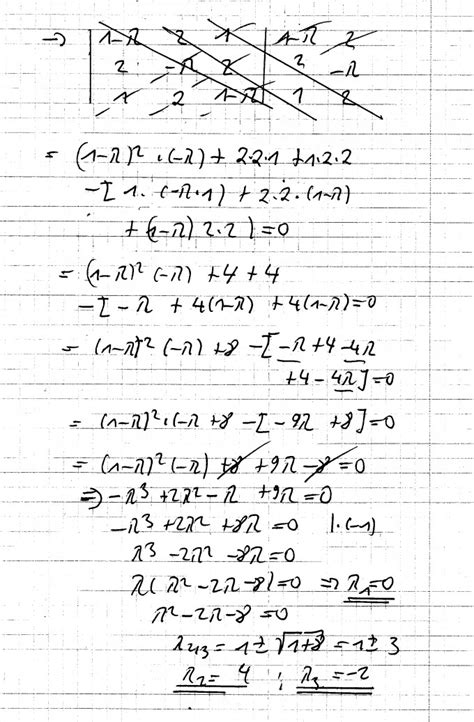 → | 1-λ 2 1 | 1-λ 2
2 -λ 2 | 2 -λ
1 2 1-λ | 1 2
= (1-λ)² · (-λ) + 2·2·1 + 1·2·2
-[ 1 · (-λ·1) + 2·2·(1-λ)
+ (1-λ) 2·2 ] = 0
= (1-λ)² (-λ) + 4 + 4
-[ -λ + 4(1-λ) + 4(1-λ) = 0
= (1-λ)² (-λ) + 8 - [ -λ + 4 - 4λ
+ 4 - 4λ ] = 0
= (1-λ)² · (-λ + 8 - [ - 9λ + 8 ] = 0
= (1-λ)² (-λ) + 8 + 9λ - 8 = 0
⇒ -λ³ + 2λ² - λ + 9λ = 0
-λ³ + 2λ² + 8λ = 0 | · (-1)
λ³ - 2λ² - 8λ = 0
λ ( λ² - 2λ - 8 ) = 0 ⇒ λ₁ = 0
λ² - 2λ - 8 = 0
λ₂,₃ = 1 ± √1+8 = 1 ± 3
λ₂ = 4 ; λ₃ = -2